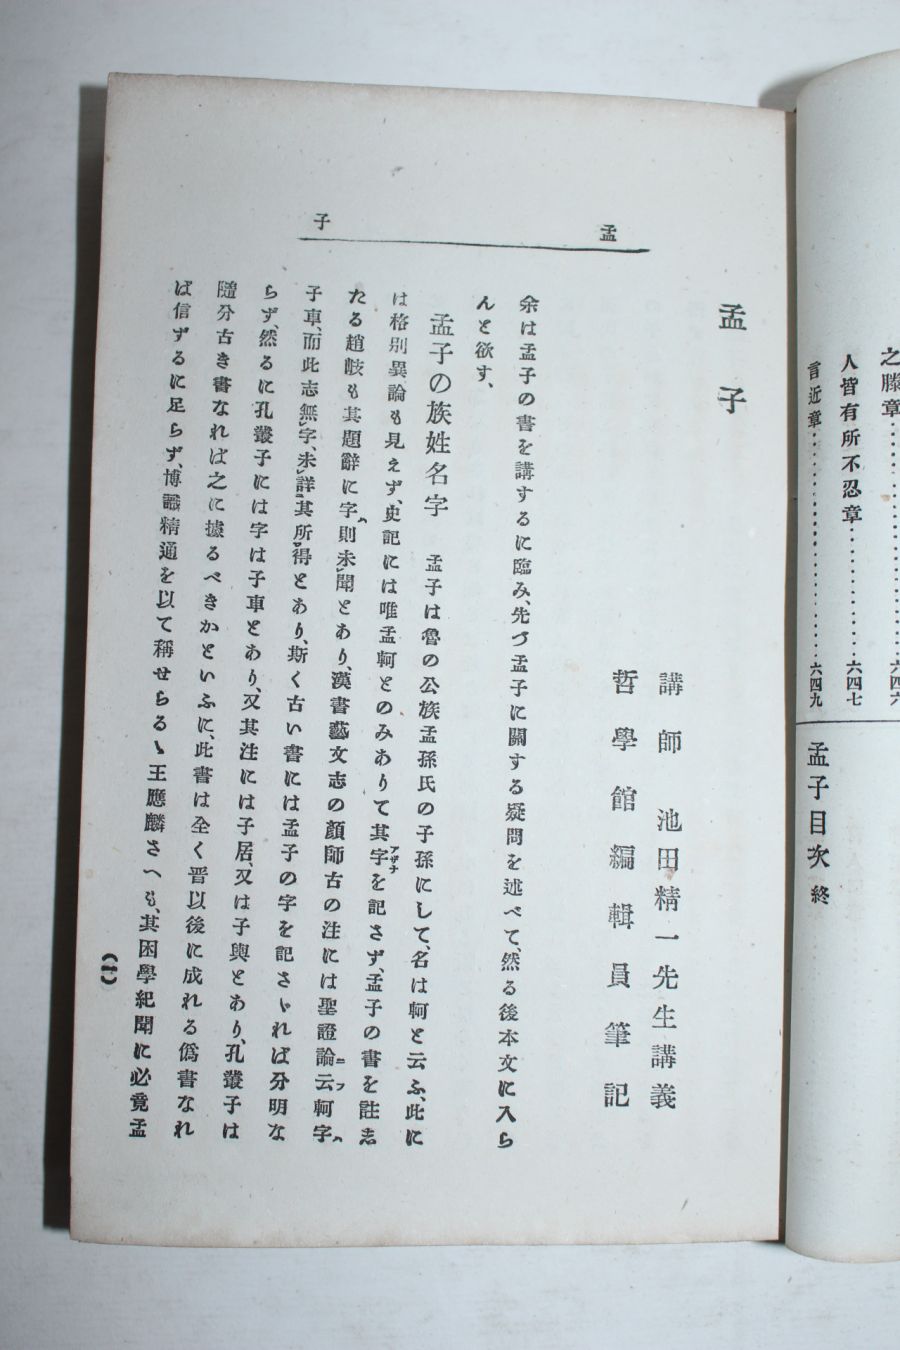 之滕章……六四六
人皆有所不忍章……六四七
言近章……六四九
孟子目次 終
孟子
孟子
講師 池田精一先生講義
哲學館編輯員筆記
余は孟子の書を講するに臨み、先づ孟子に關する疑問を述べて、然る後本文に入ら
んと欲す、
孟子の族姓名字 孟子は魯の公族孟孫氏の子孫にして、名は軻と云ふ、此に
は格別異論も見えず、史記には唯孟軻とのみありて其字を記さず、孟子の書を註志
アザナ
たる趙岐も其題辭に字則未聞とあり、漢書藝文志の顏師古の注には聖證論云軻字
子車、而此志無字、未詳其所得とあり、斯く古い書には孟子の字を記さゝれば分明な
らず、然るに孔叢子には字は子車とあり、又其注には子居、又は子輿とあり、孔叢子は
隨分古き書なれば之に據るべきかといふに、此書は全く晋以後に成れる僞書なれ
ば信ずるに足らず、博識精通を以て稱せらるゝ王應麟さへも、其困學紀聞に必竟孟
(一)